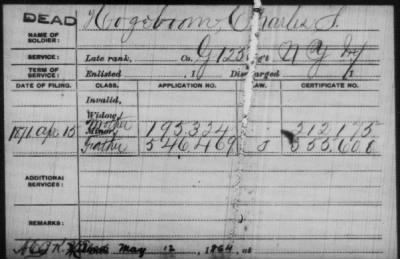 DEAD
NAME OF SOLDIER: Hogeboom, Charles S.
SERVICE: Late rank, Co. G 123 Reg't N Y Inf
TERM OF SERVICE: Enlisted , 1 Discharged 1
DATE OF FILING. CLASS. APPLICATION NO. LAW. CERTIFICATE NO.
Invalid,
Widow,
1871 Apr. 15 Mother 195.334 212.175
Minor,
Father 546.469 355.606
ADDITIONAL SERVICES:
REMARKS:
Died May 12, 1864, at